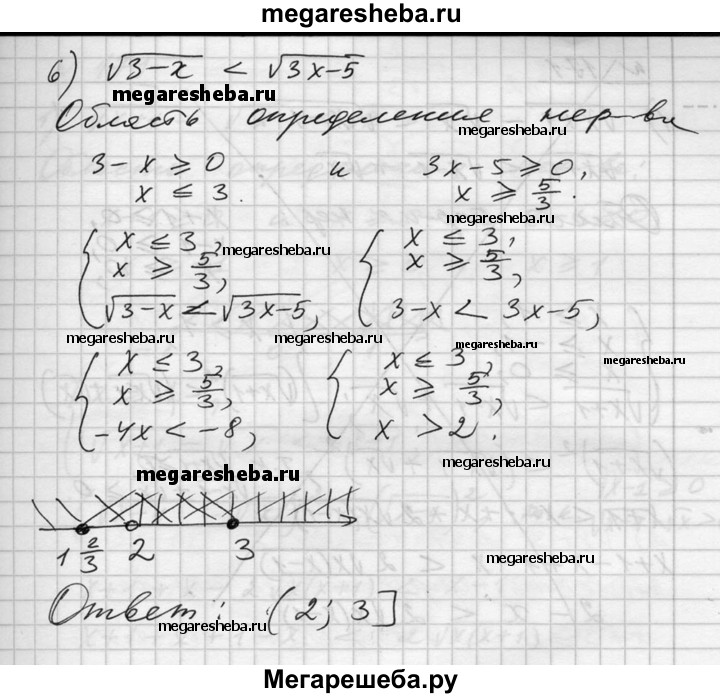 megaresheba.ru
б) √3-x < √3x-5
megaresheba.ru
Область определение нер-ва
megaresheba.ru
3-x ≥ 0 и 3x-5 ≥ 0,
x ≤ 3. x ≥ 5/3.
megaresheba.ru
{ x ≤ 3, { x ≤ 3,
megaresheba.ru
x ≥ 5/3, x ≥ 5/3,
√3-x < √3x-5, 3-x < 3x-5,
megaresheba.ru megaresheba.ru megaresheba.ru
{ x ≤ 3, { x ≤ 3,
megaresheba.ru
x ≥ 5/3, x ≥ 5/3,
-4x < -8, x > 2.
megaresheba.ru
megaresheba.ru
1 2/3 2 3
megaresheba.ru
Ответ: (2; 3]
megaresheba.ru
Мегарешеба.ру